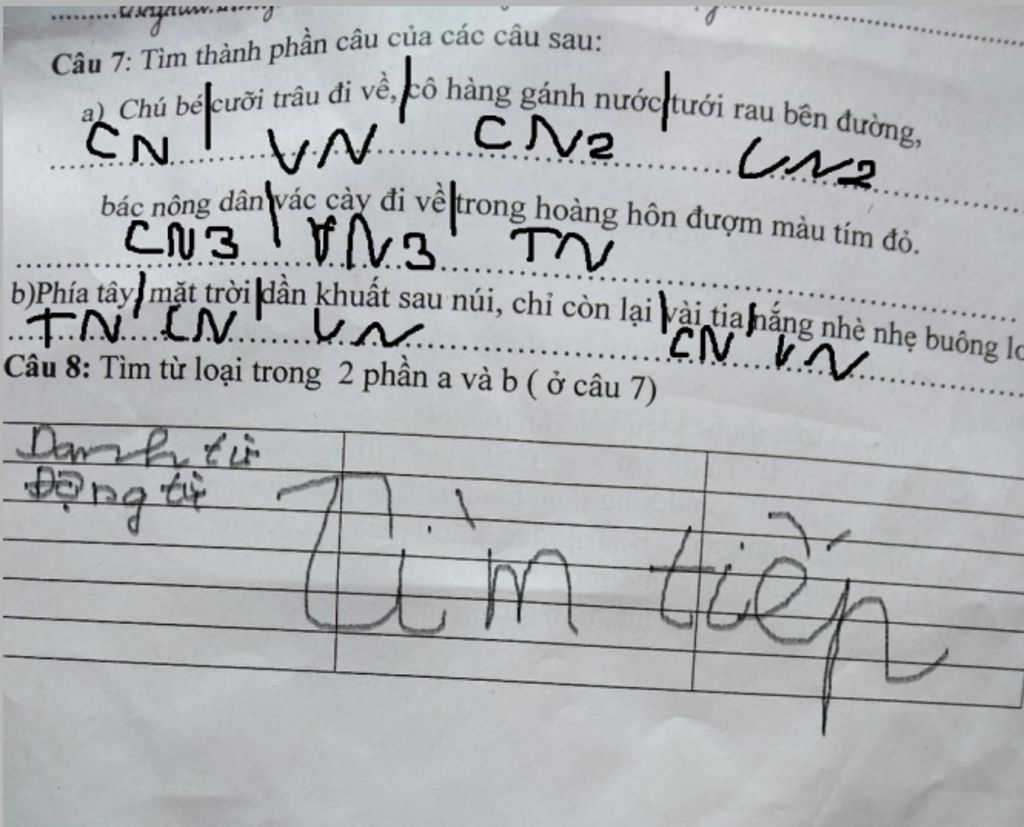 Câu 7: Tìm thành phần câu của các câu sau:
a) Chú bé cưỡi trâu đi về, cô hàng gánh nước tưới rau bên đường,
CN VN CN2 VN2
bác nông dân vác cày đi về trong hoàng hôn đượm màu tím đỏ.
CN3 VN3 TN
b)Phía tây mặt trời dần khuất sau núi, chỉ còn lại vài tia nắng nhè nhẹ buông
TN CN VN CN VN
Câu 8: Tìm từ loại trong 2 phần a và b ( ở câu 7)
Danh từ
Động từ
Tìm tiếp